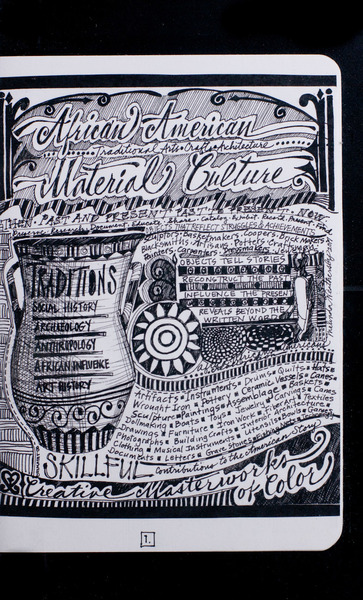 African American
Traditional Arts • Crafts • Architecture
Material Culture
THEN • PAST AND PRESENT • PAST • PRESENT • NOW
Document
OBJECTS THAT REFLECT STRUGGLES & ACHIEVEMENTS
Quilters • Basketmakers • Coopers • Dock Makers
Blacksmiths • Artisans • Potters • Craftsmen
Painters • Carpenters • Dressmakers
OBJECTS TELL STORIES
RECONSTRUCT THE PAST
INFLUENCE THE PRESENT
REVEALS BEYOND THE
WRITTEN WORD
TRADITIONS
SOCIAL HISTORY
ARCHEOLOGY
ANTHROPOLOGY
AFRICAN INFLUENCE
ART HISTORY
Artifacts • Instruments • Drums • Quilts • Hats •
Wrought Iron • Pottery • Ceramic Vessels • Canes •
Sculpture • Paintings • Assemblage • Baskets •
Dollmaking • Boats • Toys • Jewelry • Carvings • Cams
Drawings • Furniture • Iron Work • Fiber Art • Textiles
Photographs • Building Crafts • Interior Architecture •
Clothing • Musical Instruments • Utensils • Tools • Games
Documents • Letters • Grave Stones •
SKILLFUL
Contributions to the American Story
Creative Masterworks
of Color
1.